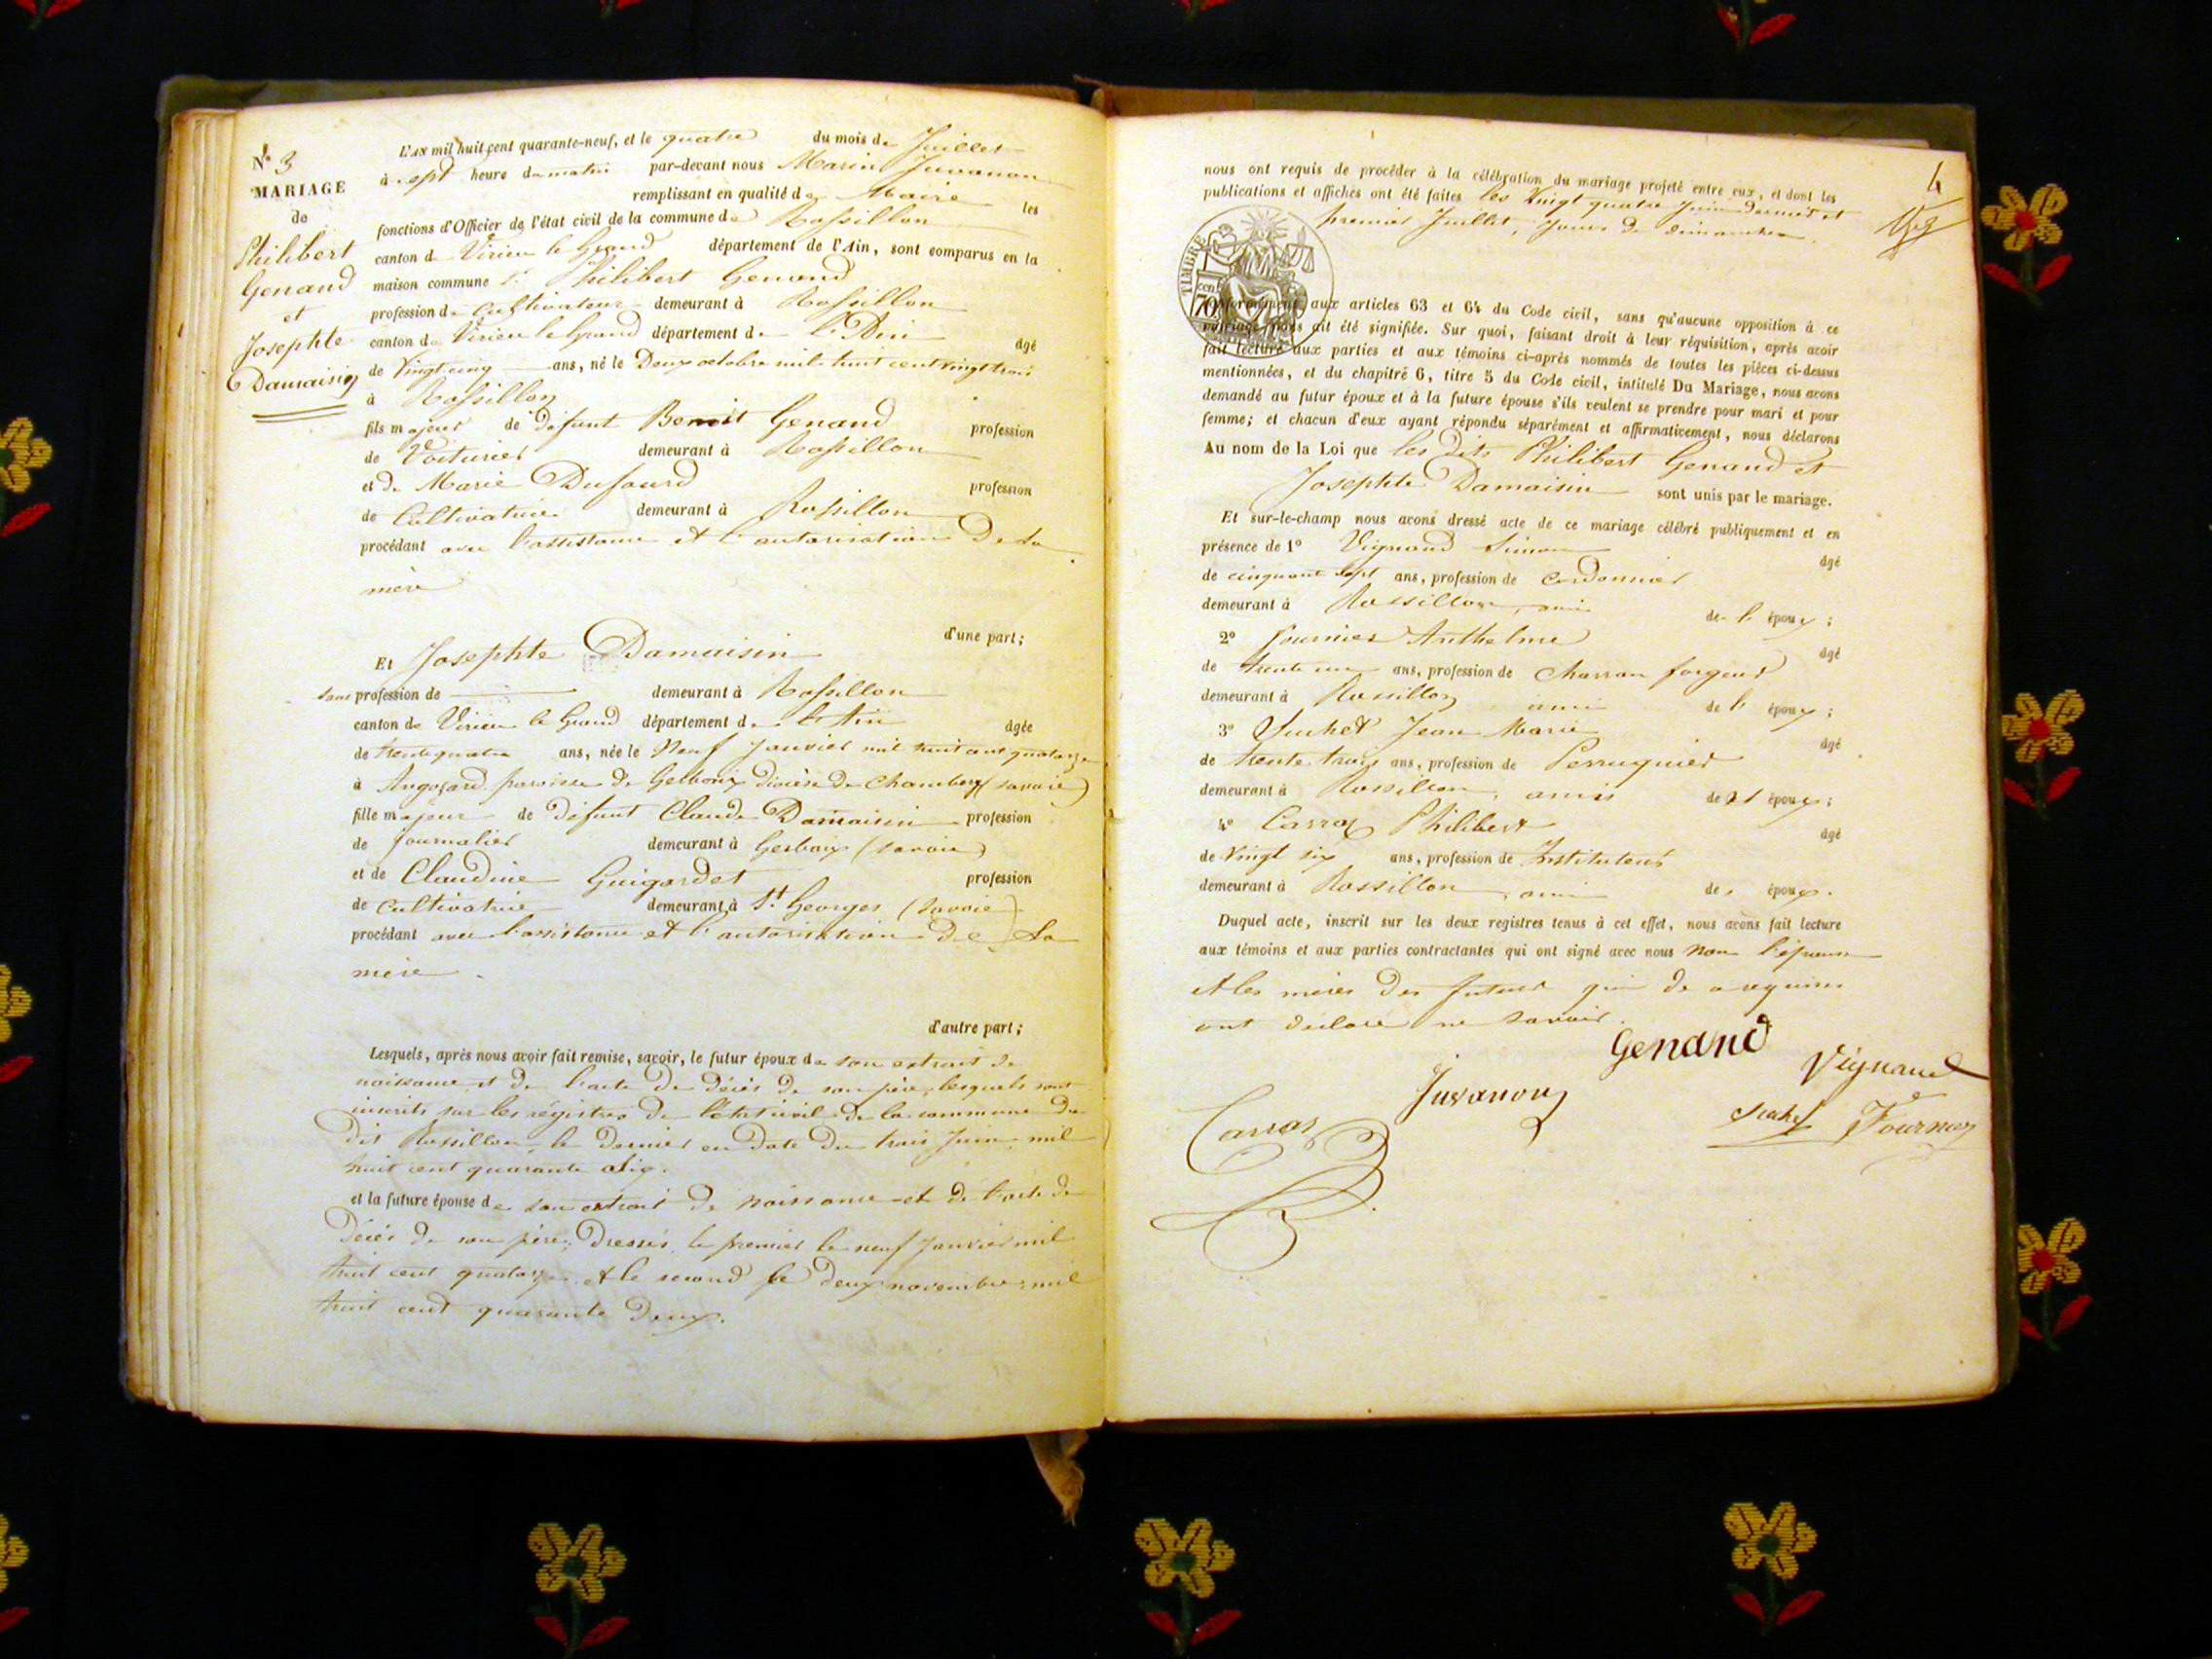 N° 3
MARIAGE
de
Philibert
Genand
et
Josephte
Damaisin
L'AN mil huit cent quarante-neuf, et le quatre du mois de Juillet
à sept heure du matin par-devant nous Marin Juvanon
remplissant en qualité de Maire les
fonctions d'Officier de l'état civil de la commune de Rossillon
canton de Virieu le Grand département de l'Ain, sont comparus en la
maison commune Philibert Genand
profession de Cultivateur demeurant à Rossillon
canton de Virieu le Grand département de l'Ain âgé
de Vingt cinq ans, né le Deux octobre mil huit cent vingt trois
à Rossillon
fils majeur de défunt Benoit Genand profession
de Voiturier demeurant à Rossillon
et de Marie Dufourd profession
de Cultivatrice demeurant à Rossillon
procédant avec l'assistance et l'autorisation De sa
mère
d'une part;
Et Josephte Damaisin
sans profession de demeurant à Rossillon
canton de Virieu le Grand département de l'Ain âgée
de trente quatre ans, née le Neuf Janvier mil huit cent quatorze
à paroisse de Gerbaix diocèse de Chambery (savoie)
fille majeur de défunt Claude Damaisin profession
de journalier demeurant à Gerbaix (savoie)
et de Claudine Guigardet profession
de Cultivatrice demeurant à St Georges (savoie)
procédant avec l'assistance et l'autorisation De sa
mère.
d'autre part;
Lesquels, après nous avoir fait remise, savoir, le futur époux de son extrait de
naissance et de l'acte de décès de son père, lesquels sont
inscrits sur les régistres de l'état civil de la commune du
dit Rossillon, le dernier en date du trois Juin mil
huit cent quarante
et la future épouse de son extrait de naissance et de l'acte de
Décès de son père, Dressés le premier le neuf Janvier mil
huit cent quatorze et le second le deux novembre mil
huit cent quarante Deux.
4
nous ont requis de procéder à la célébration du mariage projeté entre eux, et dont les
publications et affiches ont été faites les Vingt quatre Juin dernier et
premier Juillet, jours de dimanche.
TIMBRE
70 cen
conformément aux articles 63 et 64 du Code civil, sans qu'aucune opposition à ce
mariage nous ait été signifiée. Sur quoi, faisant droit à leur réquisition, après avoir
fait lecture aux parties et aux témoins ci-après nommés de toutes les pièces ci-dessus
mentionnées, et du chapitre 6, titre 5 du Code civil, intitulé Du Mariage, nous avons
demandé au futur époux et à la future épouse s'ils veulent se prendre pour mari et pour
femme; et chacun d'eux ayant répondu séparément et affirmativement, nous déclarons
Au nom de la Loi que les dits Philibert Genand et
Josephte Damaisin sont unis par le mariage.
Et sur-le-champ nous avons dressé acte de ce mariage célébré publiquement et en
présence de 1° Vignand Simon âgé
de cinquante sept ans, profession de Cordonnier
demeurant à Rossillon, ami de l' époux;
2° Fournier Anthelme âgé
de trente un ans, profession de Charron forgeur
demeurant à Rossillon ami de l' époux;
3° Suchet Jean Marie âgé
de trente trois ans, profession de Perruquier
demeurant à Rossillon, amis des époux;
4° Carraz Philibert âgé
de Vingt six ans, profession de Instituteur
demeurant à Rossillon, ami de époux.
Duquel acte, inscrit sur les deux registres tenus à cet effet, nous avons fait lecture
aux témoins et aux parties contractantes qui ont signé avec nous non l'épouse
et les mères des futurs qui de ce requises
ont déclaré ne savoir.
Genand
Vignand
Juvanon
Carraz
Suchet
Fournier